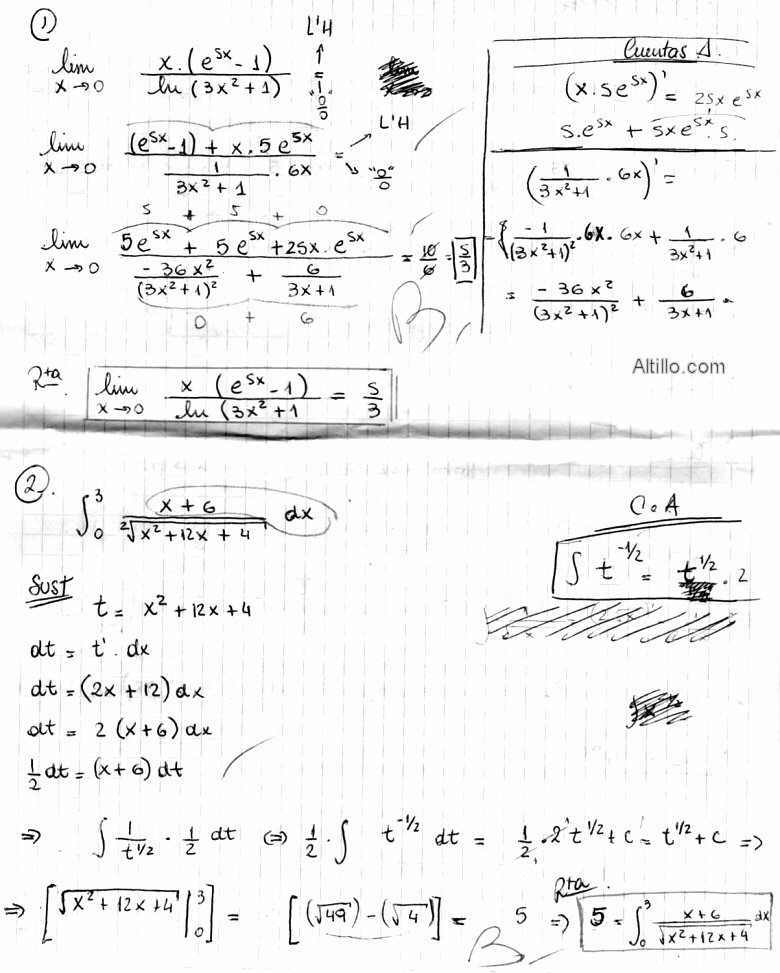 1
L'H
lim x→0 x.(e^5x - 1) / ln(3x² + 1) = "0/0"
L'H
lim x→0 (e^5x - 1) + x.5e^5x / 1/(3x² + 1) . 6x = "0/0"
5 + 5 + 0
lim x→0 5e^5x + 5e^5x + 25x.e^5x / -36x²/(3x²+1)² + 6/(3x+1) = 10/6 = 5/3
0 + 6
B
Cuentas A.
(x.5e^5x)' = 25x e^5x
5.e^5x + 5xe^5x.5.
(1/(3x²+1) . 6x)' =
= { -1/(3x²+1)² . 6x . 6x + 1/(3x²+1) . 6
= -36x²/(3x²+1)² + 6/(3x+1)
Altillo.com
Rta. lim x→0 x (e^5x - 1) / ln (3x² + 1 = 5/3
2.
∫₀³ x + 6 / ²√x² + 12x + 4 dx
C.A
∫ t^-1/2 = t^1/2 . 2
Sust
t = x² + 12x + 4
dt = t' . dx
dt = (2x + 12) dx
dt = 2 (x + 6) dx
1/2 dt = (x + 6) dt
⇒ ∫ 1/t^1/2 . 1/2 dt ⇔ 1/2 . ∫ t^-1/2 dt = 1/2 . 2 t^1/2 + c = t^1/2 + c ⇒
⇒ [√x² + 12x + 4 |₀³] = [(√49) - (√4)] = 5 ⇒ Rta. 5 = ∫₀³ x + 6 / √x² + 12x + 4 dx
B